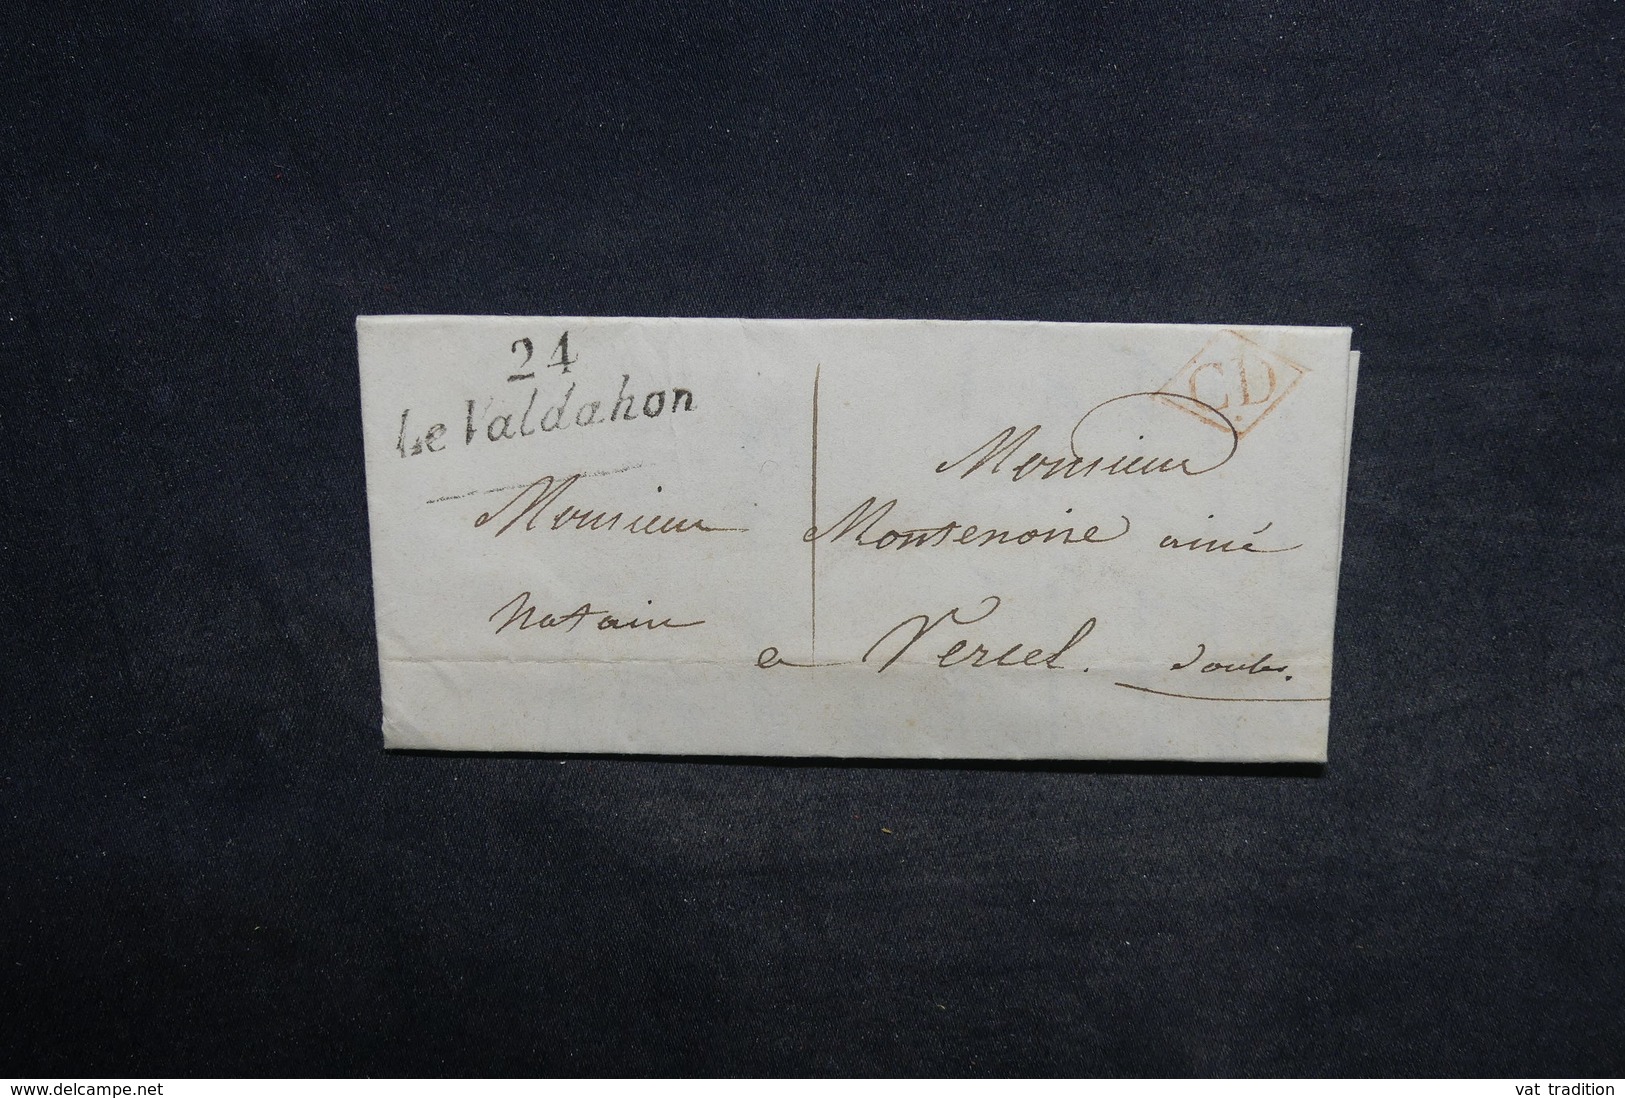 24
Le Valdahon
CD
Monsieur
Montenoire ainé
Monsieur
Notaire
a Vercel. Doubs.
www.delcampe.net
vat_tradition